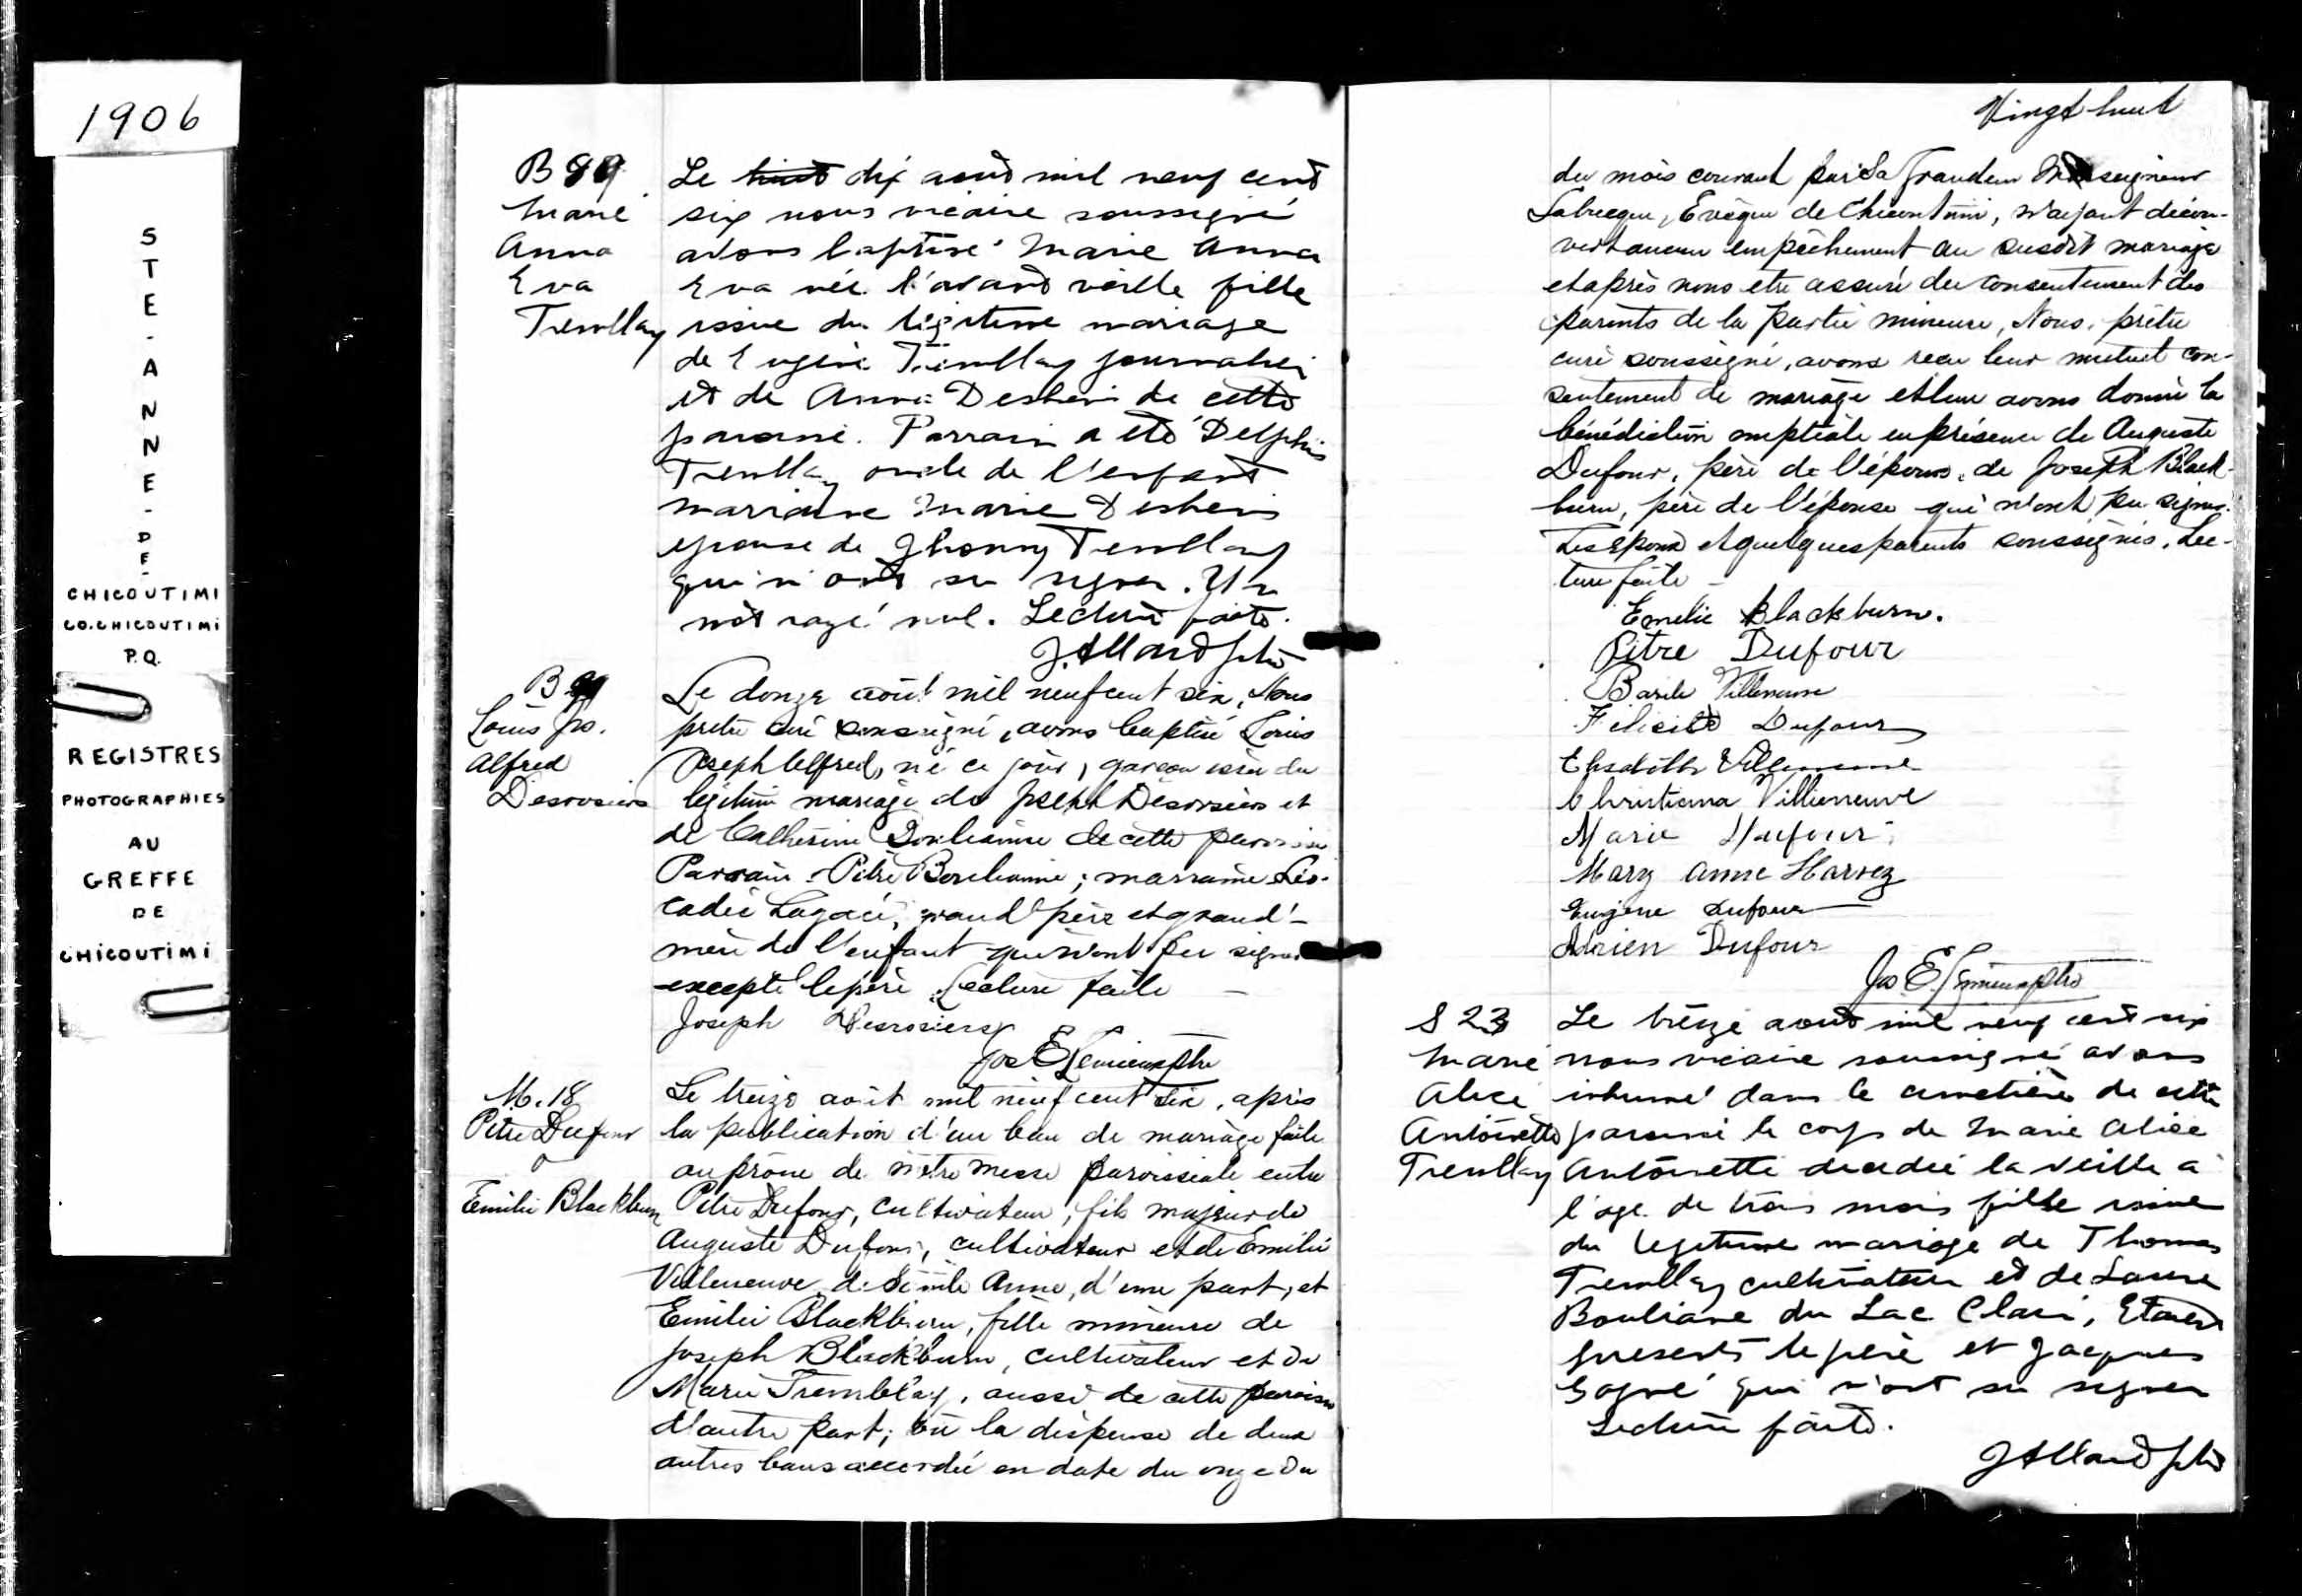 1906
STE-ANNE-DE-
CHICOUTIMI
CO. CHICOUTIMI
P.Q.
REGISTRES
PHOTOGRAPHIES
AU
GREFFE
DE
CHICOUTIMI
B 89
Marie
Anna
Eva
Tremblay
Le huit dix août mil neuf cent
six nous vicaire soussigné
avons baptisé Marie Anna
Eva née l'avant veille fille
issue du légitime mariage
de Eugène Tremblay journalier
et de Anna Desbiens de cette
paroisse. Parrain a été Delphis
Tremblay oncle de l'enfant
marraine Marie Desbiens
epouse de Jhonny Tremblay
qui n'ont su signer. Un
mot rayé nul. Lecture faite.
J. Allard ptre
B
Louis Jos.
Alfred
Desrosiers
Le douze août mil neuf cent six, Nous
prêtre curé soussigné, avons baptisé Louis
Joseph Alfred, né ce jour, garçon issu du
légitime mariage de Joseph Desrosiers et
de Catherine Boulianne de cette paroisse
Parrain Pitre Boulianne; marraine Léo-
cadie Lagacé, grand'père et grand'-
mère de l'enfant qui n'ont pu signer
excepté le père. Lecture faite –
Joseph Desrosiers
Jos E Lemieux ptre
M. 18
Pitre Dufour
&
Emilie Blackburn
Le treize août mil neuf cent six, après
la publication d'un ban de mariage faite
au prône de notre messe paroissiale entre
Pitre Dufour, cultivateur, fils majeur de
Auguste Dufour, cultivateur et de Emilie
Villeneuve de Sainte Anne, d'une part, et
Emilie Blackburn, fille mineure de
Joseph Blackburn, cultivateur et de
Marie Tremblay, aussi de cette paroisse
d'autre part; vu la dispense de deux
autres bans accordée en date du onze du
Vingt-huit
du mois courant par Sa Grandeur Monseigneur
Labrecque, Evêque de Chicoutimi, n'ayant décou-
vert aucun empêchement au susdit mariage
et après nous etre assuré du consentement des
parents de la partie mineure, Nous, prêtre
curé soussigné, avons reçu leur mutuel con-
sentement de mariage et leur avons donné la
bénédiction nuptiale en présence de Auguste
Dufour, père de l'époux, de Joseph Black-
burn, père de l'épouse qui n'ont pu signer.
Les époux et quelques parents soussignés. Lec-
ture faite –
Emelie Blackburn.
Pitre Dufour
Basile Villeneuve
Félicité Dufour
Elisabeth Villeneuve
Christianna Villieneuve
Marie Dufour
Mary Anne Harvez
Eugène Dufour
Adrien Dufour
Jos. E. Lemieux ptre
S 23
Marie
Alice
Antoinette
Tremblay
Le treize août mil neuf cent six
nous vicaire soussigné avons
inhumé dans le cimetière de cette
paroisse le corps de Marie Alice
Antoinette décédée la veille a
l'age de trois mois fille issue
du légitime mariage de Thomas
Tremblay cultivateur et de Laure
Bouliane du Lac Clair, Etaient
présents le père et Jacques
Gagné qui n'ont su signer
Lecture faite.
J Allard ptre